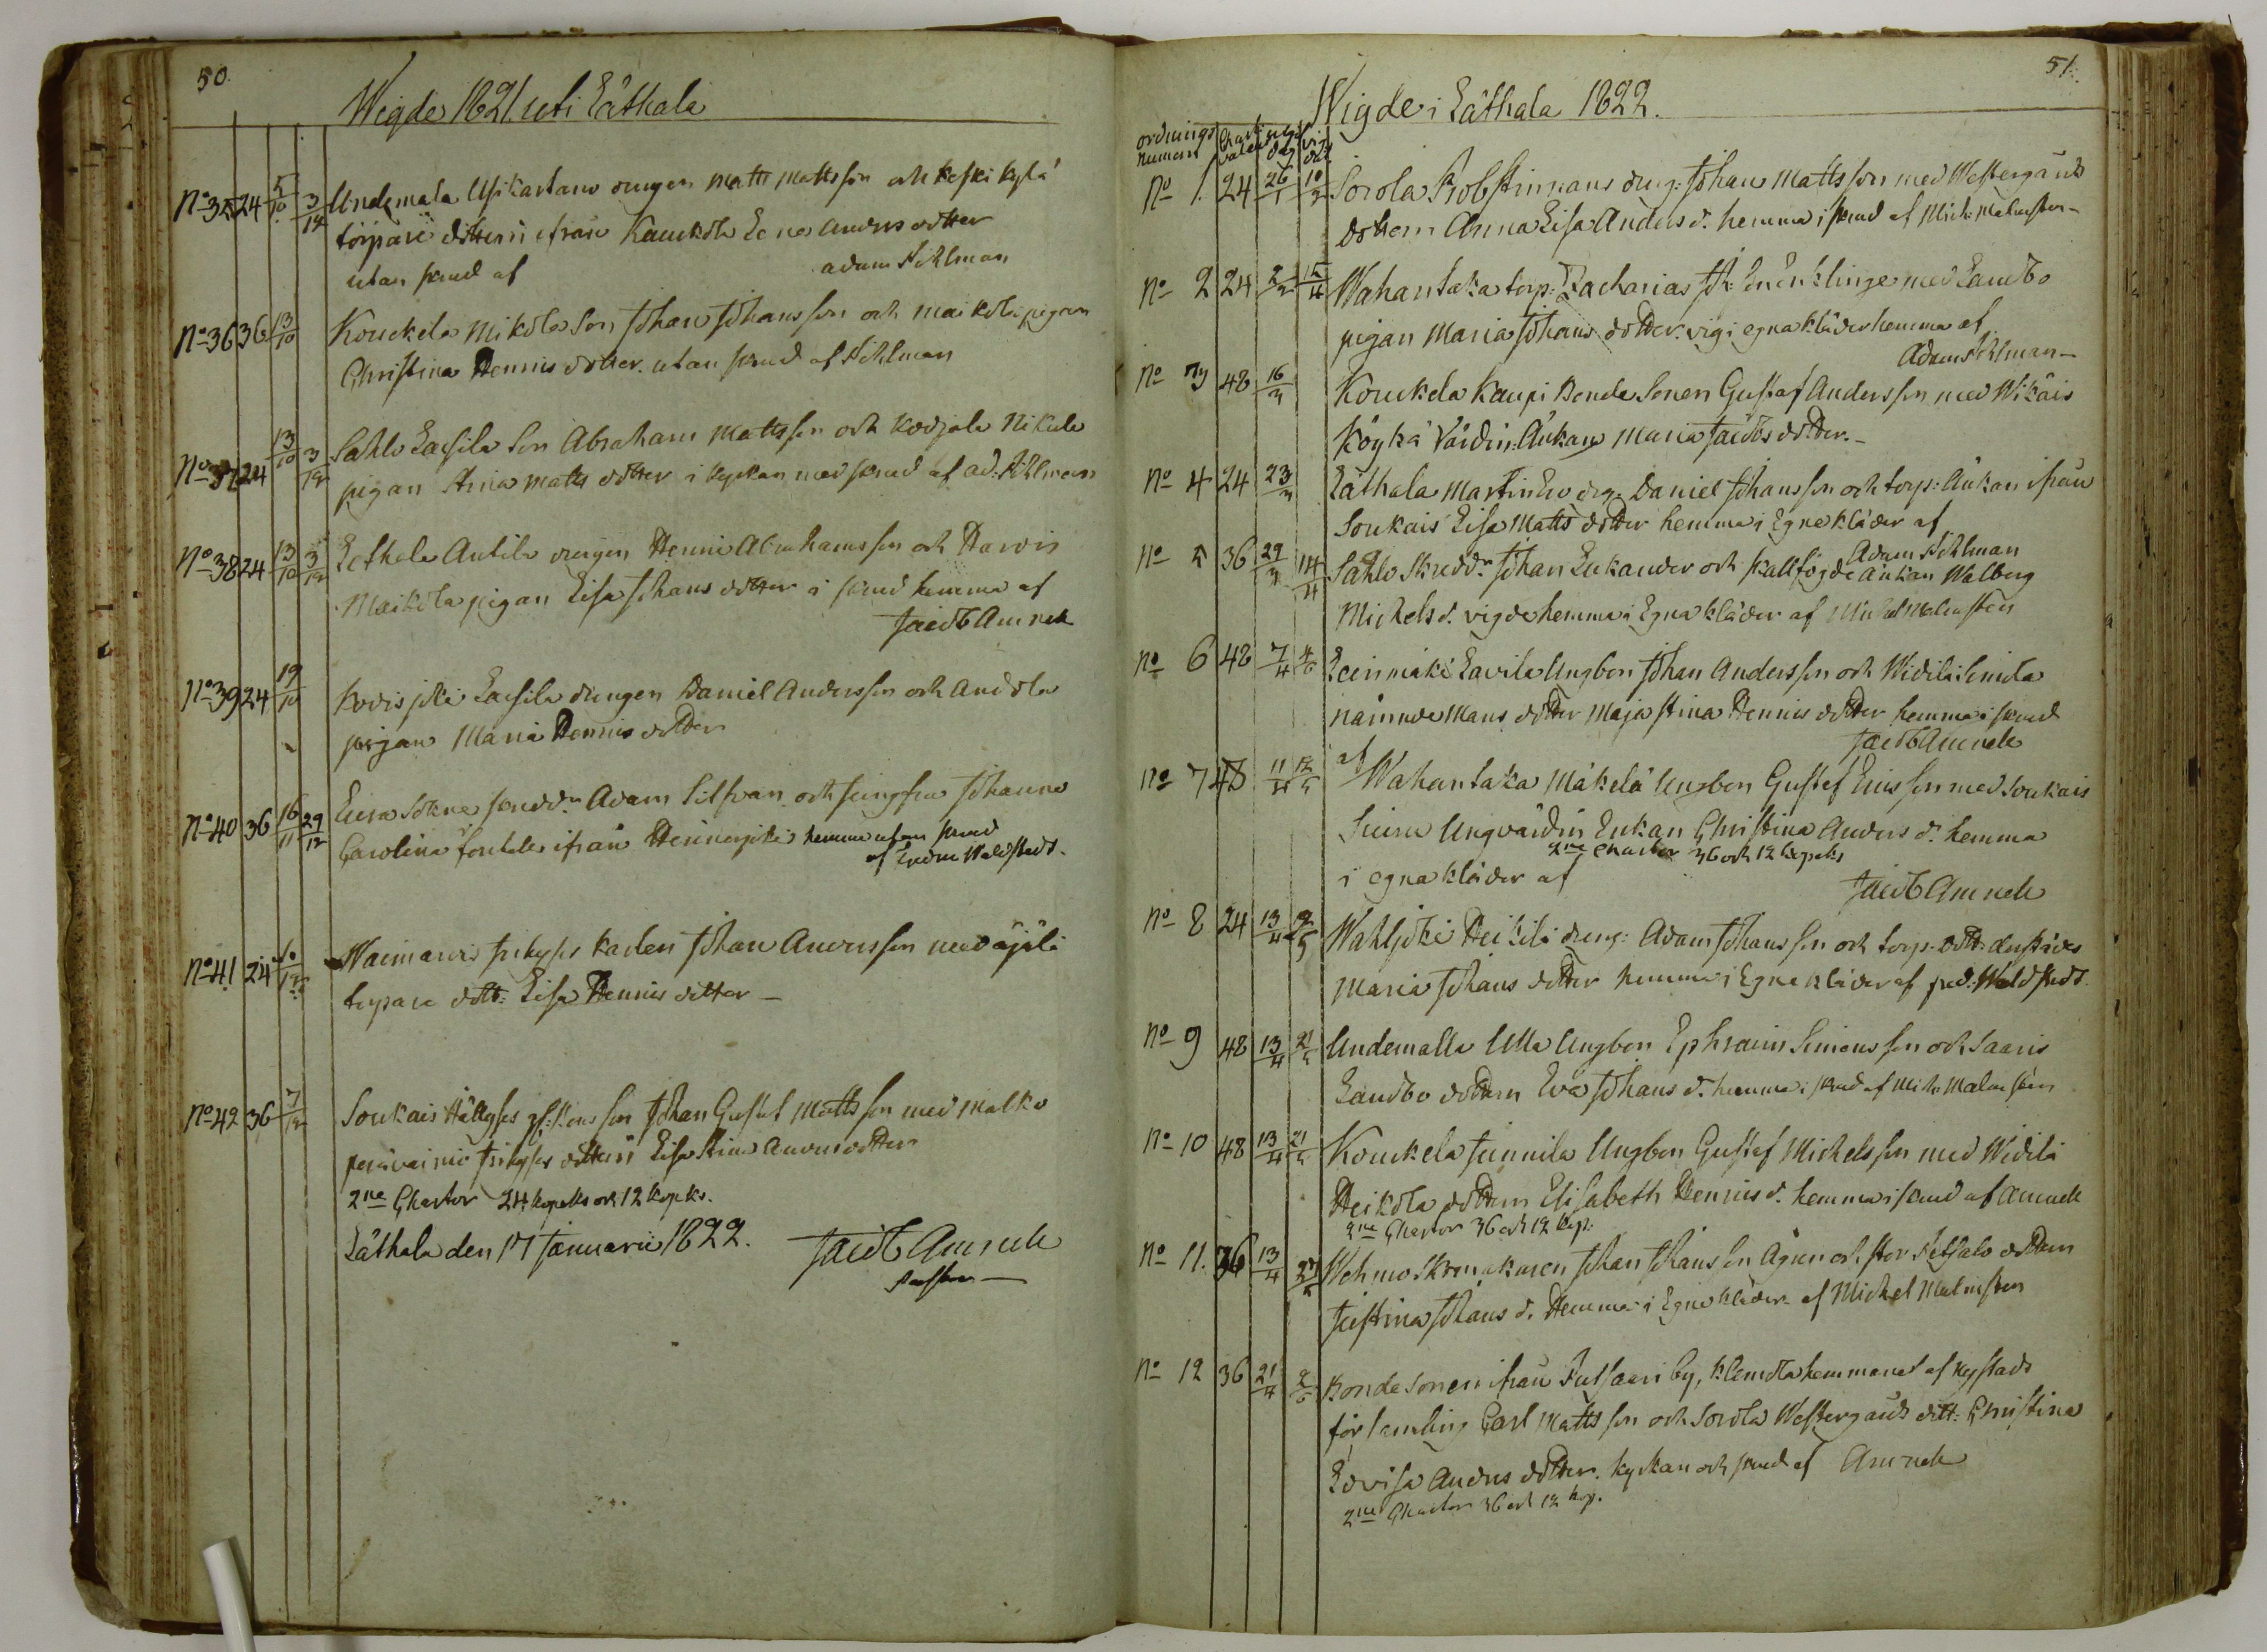 50.
Wigde 1821 uti Läthala
No 35 24 5/10 3/12 Undamala Usikartano drengen Matts Mattsson och Keski kylä
torpare dottern ifrån Kauckola Lena Anders dotter
utan skrud af Adam Kihlman
No 36 36 13/10 Kouckela Mikola Son Johan Johansson och Maikola pigan
Christina Henriesdotter. utan skrud af Kihlman
No 37 24 13/10 3/12 Sahlo Lassila Son Abraham Mattsson och Kodjala Nikula
pigan Stina Matts dotter i kyrkan med skrud af Ad. Kihlman
No 38 24 13/10 3/12 Lethala Antila drengen Henric Abrahamsson och Harvis
Maikola pigan Lisa Johans dotter i skrud hemma af
Jacob Amneli
No 39 24 19/10 Kovisjoki Lassila drengen Daniel Andersson och Andola
pigan Maria Henries dotter
No 40 36 16/11 29/12 Eura Sokne skredd: Adam Silfvan och Jungfru Johanna
Carolina ifrån Heinenjoki hemma utan skrud
af Fredric Waldstedt.
No 41 24 10/12 Waimaris friskyss karlen Johan Andersson med Äjälä
torpare dott: Lisa Henries dotter
No 42 36 7/12 Soukais Hällfyss Son Johan Gustaf Mattsson med Malko
dottern Lisa Stina Andersdotter
2ne Chartor 24 kopeks och 12 kopeks.
Läthala den 17 Januarii 1822. Jacob Amneli
Pastor
51.
Wigde i Läthala 1822.
ordnings numern Chart valeur dag vig
No 1. 24 26/1 10/2 Sorola Probstinnans dreng: Johan Mattsson med Westergårds
dottern Anna Lisa Anders d. hemma i skrud af Mich: Malmsten
No 2 24 2/3 15/4 Wahantaka torp: Zacharias Joh: Enckling med Landbo
pigan Maria Johans dotter. vig i egna kläder hemma af
Adam Kihlman
No 3 48 16/3 Kouckela Kaupi Bonde Sonen Gustaf Andersson med Wikäis
Köykä Värdin: Änkan Maria Jacobs dotter.
No 4 24 23/3 Läthala Martin Ero drg: Daniel Johansson och torp: Änkan ifrån
Soukais Lisa Matts dotter hemma i Egna kläder af
Adam Kihlman
No 5 36 29/3 14/4 Sahlo Skredd: Johan Lukander och skallfogde änkan Walberg
Michels d. vigde hemma i Egna kläder af Michel Malmsten
No 6 48 7/4 Leinmäki Lavila Ungbon Johan Andersson och Widila Simila
nämndemans dotter Maja Stina Henries dotter hemma i skrud
af Jacob Amneli
No 7 48 11/4 12/5 Wahantaka Mäkelä Ungbon Gustaf Ericsson med Soukais
Simu Ungvärdin Enkan Christina Anders d. hemma
2ne Chartor 36 och 12 kopeks
i egna kläder af Jacob Amneli
No 8 24 13/4 9/5 Wahljoki Heikilä dreng: Adam Johansson och torp: dott:
Maria Johans dotter hemma i Egna kläder af fred: Waldstedt.
No 9 48 13/4 21/5 Undemalla Ulla Ungbon Ephraim Simonsson och Saaris
Landbo dottern Eva Johans d. hemma i skrud af Mich: Malmsten
No 10 48 13/4 21/5 Kouckela Junnila Ungbon Gustaf Michelsson med Widilä
Heikola dottern Elisabeth Henries d. hemma i skrud af Amneli
2ne Chartor 36 och 12 kop:
No 11. 36 13/4 27/5 Wehmo Skomakaren Johan Johansson Ågren och stor Kihlalo dottern
Justina Johans d. Hemma i Egna kläder af Michel Malmsten
No 12 36 21/4 2/6 Bonde Sonen ifrån Kutsaari by, Klemola hemmanet af Nystads
församling Carl Mattsson och Sorola Westergårds dott: Christina
Lovisa Anders dotter. kyrkan och skrud af Amneli
2ne Chartor 36 och 12 kop.